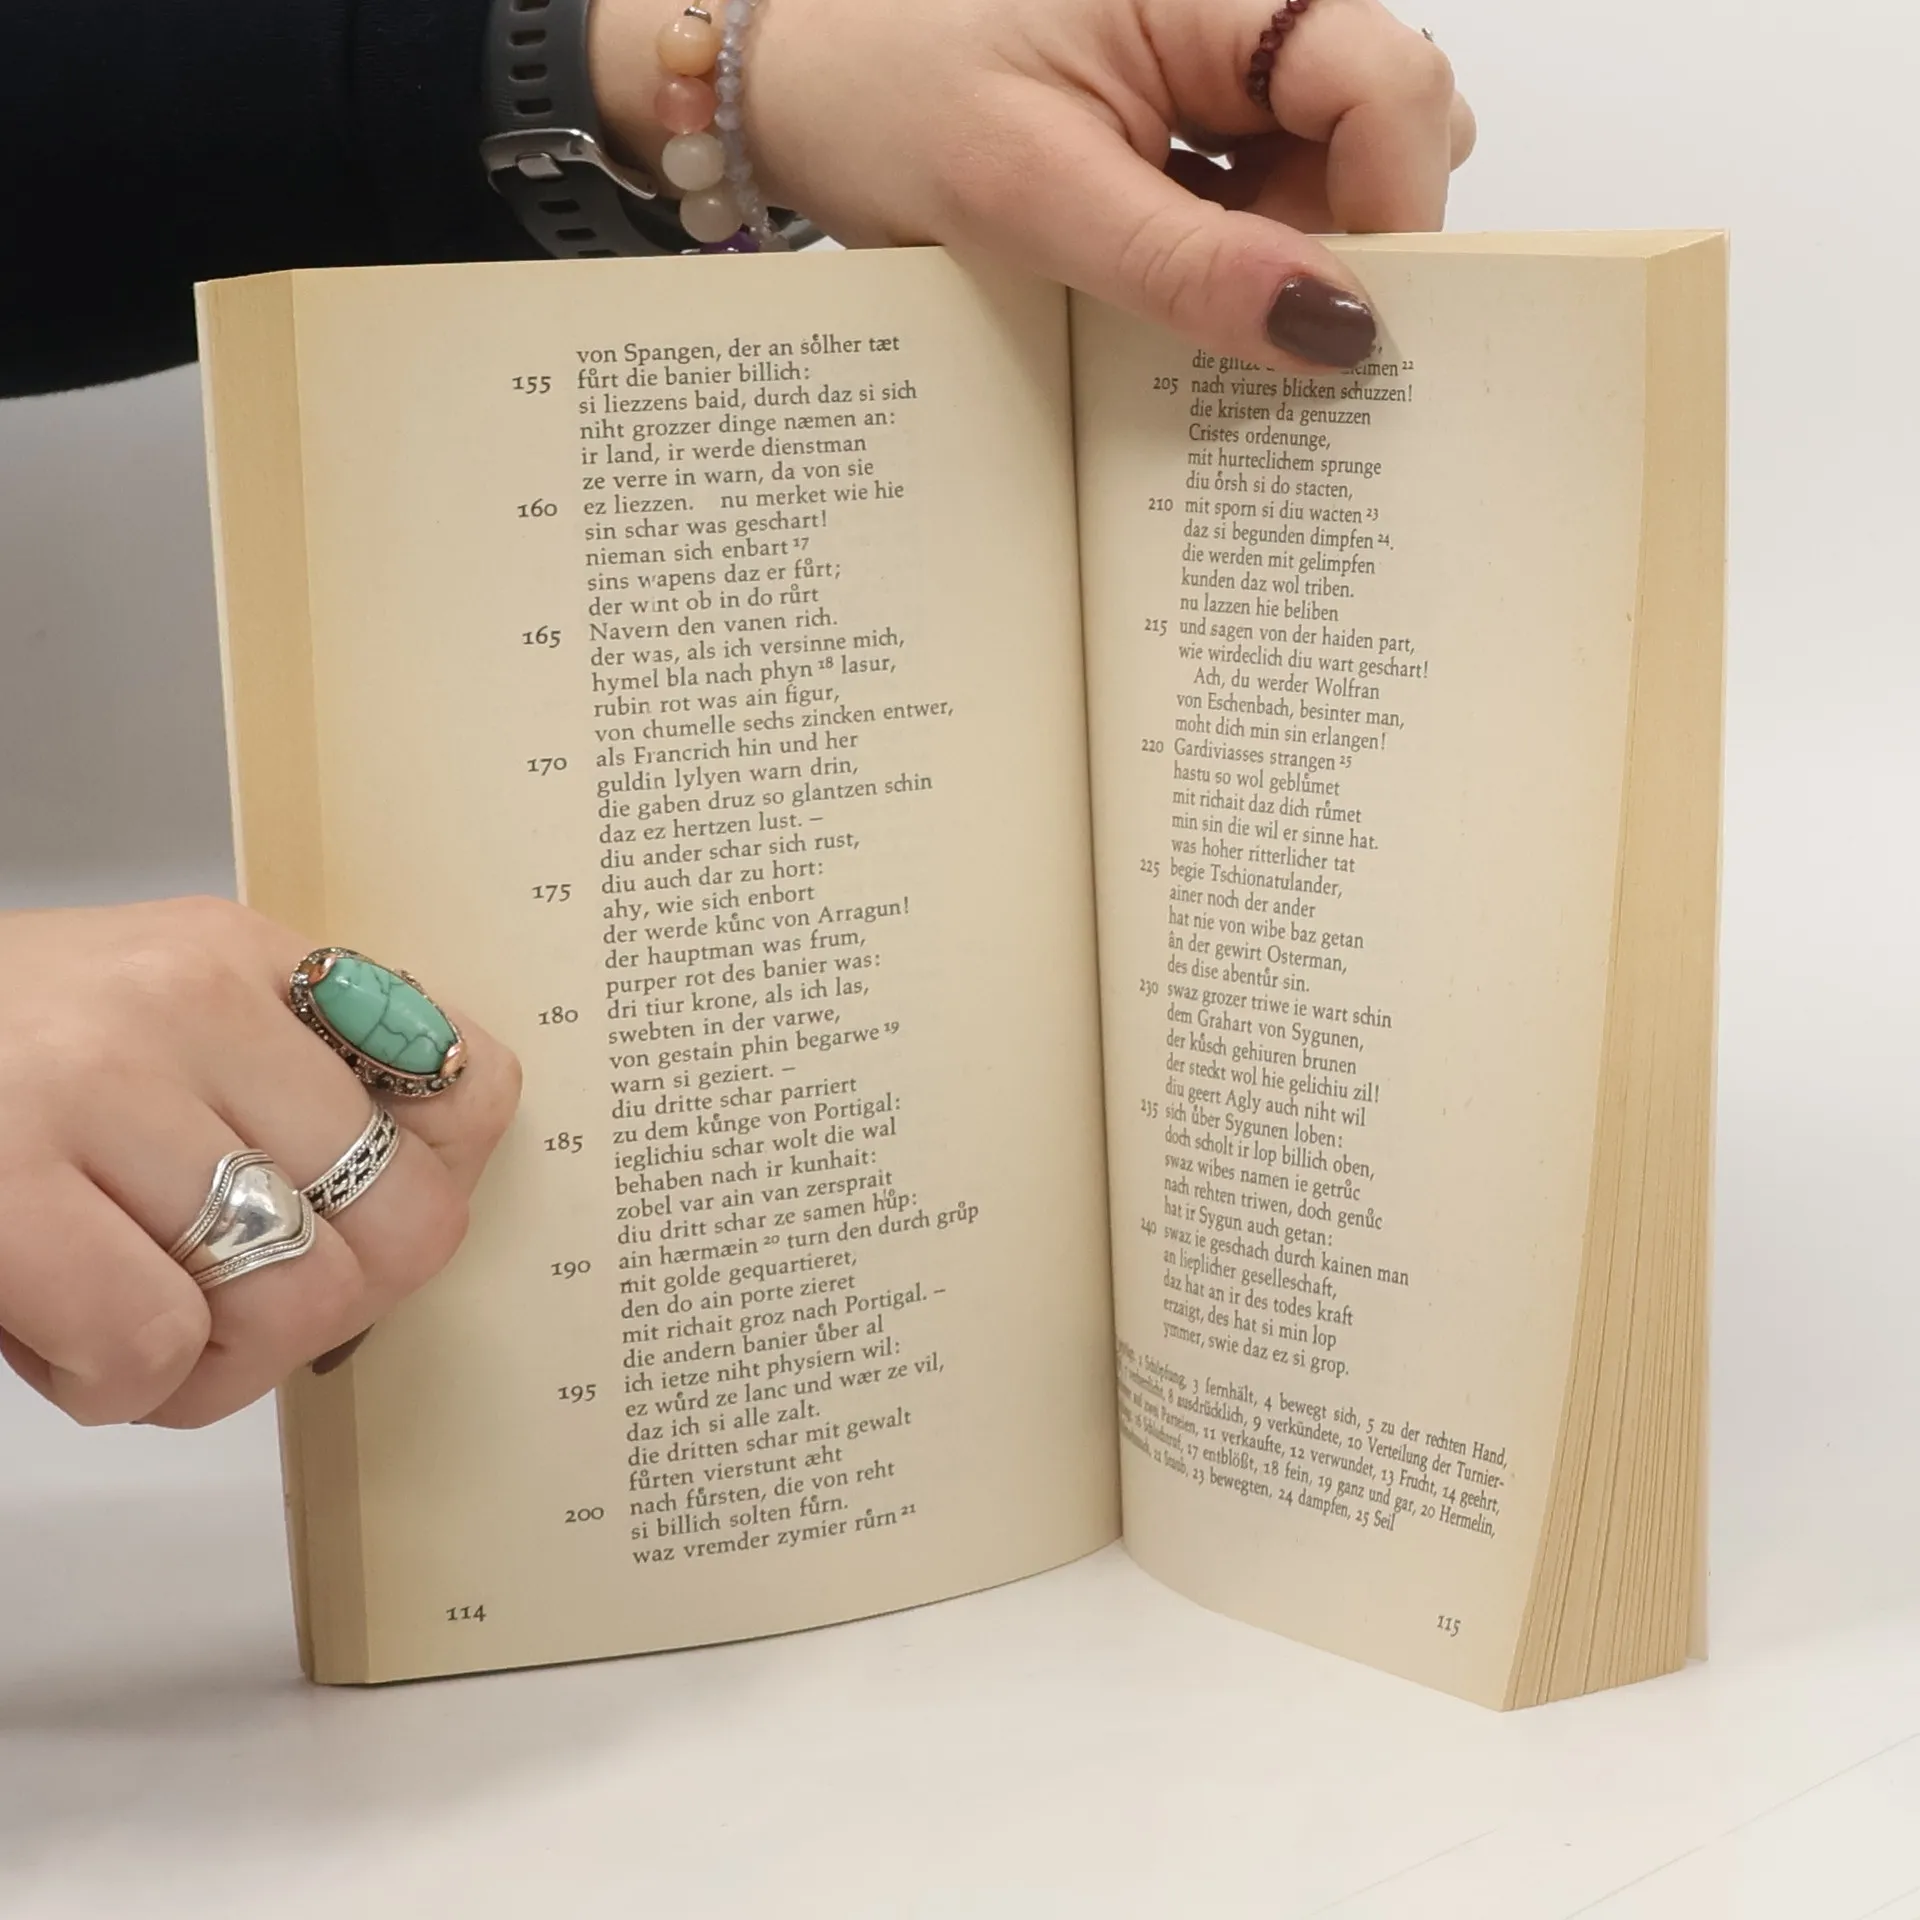 von Spangen, der an sölher tæt
155 fůrt die banier billich:
si liezzens baid, durch daz si sich
niht grozzer dinge næmen an:
ir land, ir werde dienstman
ze verre in warn, da von sie
160 ez liezzen. nu merket wie hie
sin schar was geschart!
nieman sich enbart 17
sins wapens daz er fůrt;
der wint ob in do růrt
165 Navern den vanen rich.
der was, als ich versinne mich,
hymel bla nach phyn 18 lasur,
rubin rot was ain figur,
von chumelle sechs zincken entwer,
170 als Francrich hin und her
guldin lylyen warn drin,
die gaben druz so glantzen schin
daz ez hertzen lust. –
diu ander schar sich rust,
175 diu auch dar zu hort:
ahy, wie sich enbort
der werde kůnc von Arragun!
der hauptman was frum,
purper rot des banier was:
180 dri tiur krone, als ich las,
swebten in der varwe,
von gestain phin begarwe 19
warn si geziert. –
diu dritte schar parriert
185 zu dem kůnge von Portigal:
ieglichiu schar wolt die wal
behaben nach ir kunhait:
zobel var ain van zersprait
diu dritt schar ze samen hůp:
190 ain hærmæin 20 turn den durch grůp
mit golde gequartieret,
den do ain porte zieret
mit richait groz nach Portigal. –
die andern banier ůber al
195 ich ietze niht physiern wil:
ez wůrd ze lanc und wær ze vil,
daz ich si alle zalt.
die dritten schar mit gewalt
fůrten vierstunt æht
200 nach fůrsten, die von reht
si billich solten fůrn.
waz vremder zymier růrn 21
114
die
205 nach viures blicken schuzzen!
die kristen da genuzzen
Cristes ordenunge,
mit hurteclichem sprunge
diu örsh si do stacten,
210 mit sporn si diu wacten 23
daz si begunden dimpfen 24.
die werden mit gelimpfen
kunden daz wol triben.
nu lazzen hie beliben
215 und sagen von der haiden part,
wie wirdeclich diu wart geschart!
Ach, du werder Wolfran
von Eschenbach, besinter man,
moht dich min sin erlangen!
220 Gardiviasses strangen 25
hastu so wol geblůmet
mit richait daz dich růmet
min sin die wil er sinne hat.
was hoher ritterlicher tat
225 begie Tschionatulander,
ainer noch der ander
hat nie von wibe baz getan
ân der gewirt Osterman,
des dise abentůr sin.
230 swaz grozer triwe ie wart schin
dem Grahart von Sygunen,
der kůsch gehiuren brunen
der steckt wol hie gelichiu zil!
diu geert Agly auch niht wil
235 sich ůber Sygunen loben:
doch scholt ir lop billich oben,
swaz wibes namen ie getrůc
nach rehten triwen, doch genůc
hat ir Sygun auch getan:
240 swaz ie geschach durch kainen man
an lieplicher geselleschaft,
daz hat an ir des todes kraft
erzaigt, des hat si min lop
ymmer, swie daz ez si grop.
Schöpfung, 3 fernhält, 4 bewegt sich, 5 zu der rechten Hand,
8 ausdrücklich, 9 verkündete, 10 Verteilung der Turnier-
auf zwei Parteien, 11 verkaufte, 12 verwundet, 13 Frucht, 14 geehrt,
17 entblößt, 18 fein, 19 ganz und gar, 20 Hermelin,
23 bewegten, 24 dampfen, 25 Seil
115